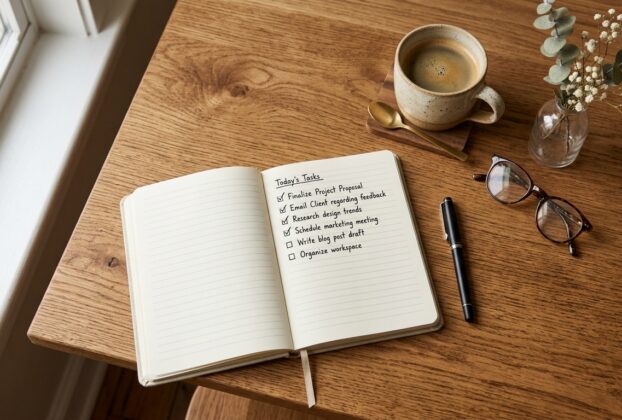 Today's Tasks
☑ Finalize Project Proposal
☑ Email Client regarding feedback
☑ Research design trends
☑ Schedule marketing meeting
☐ Write blog post draft
☐ Organize workspace